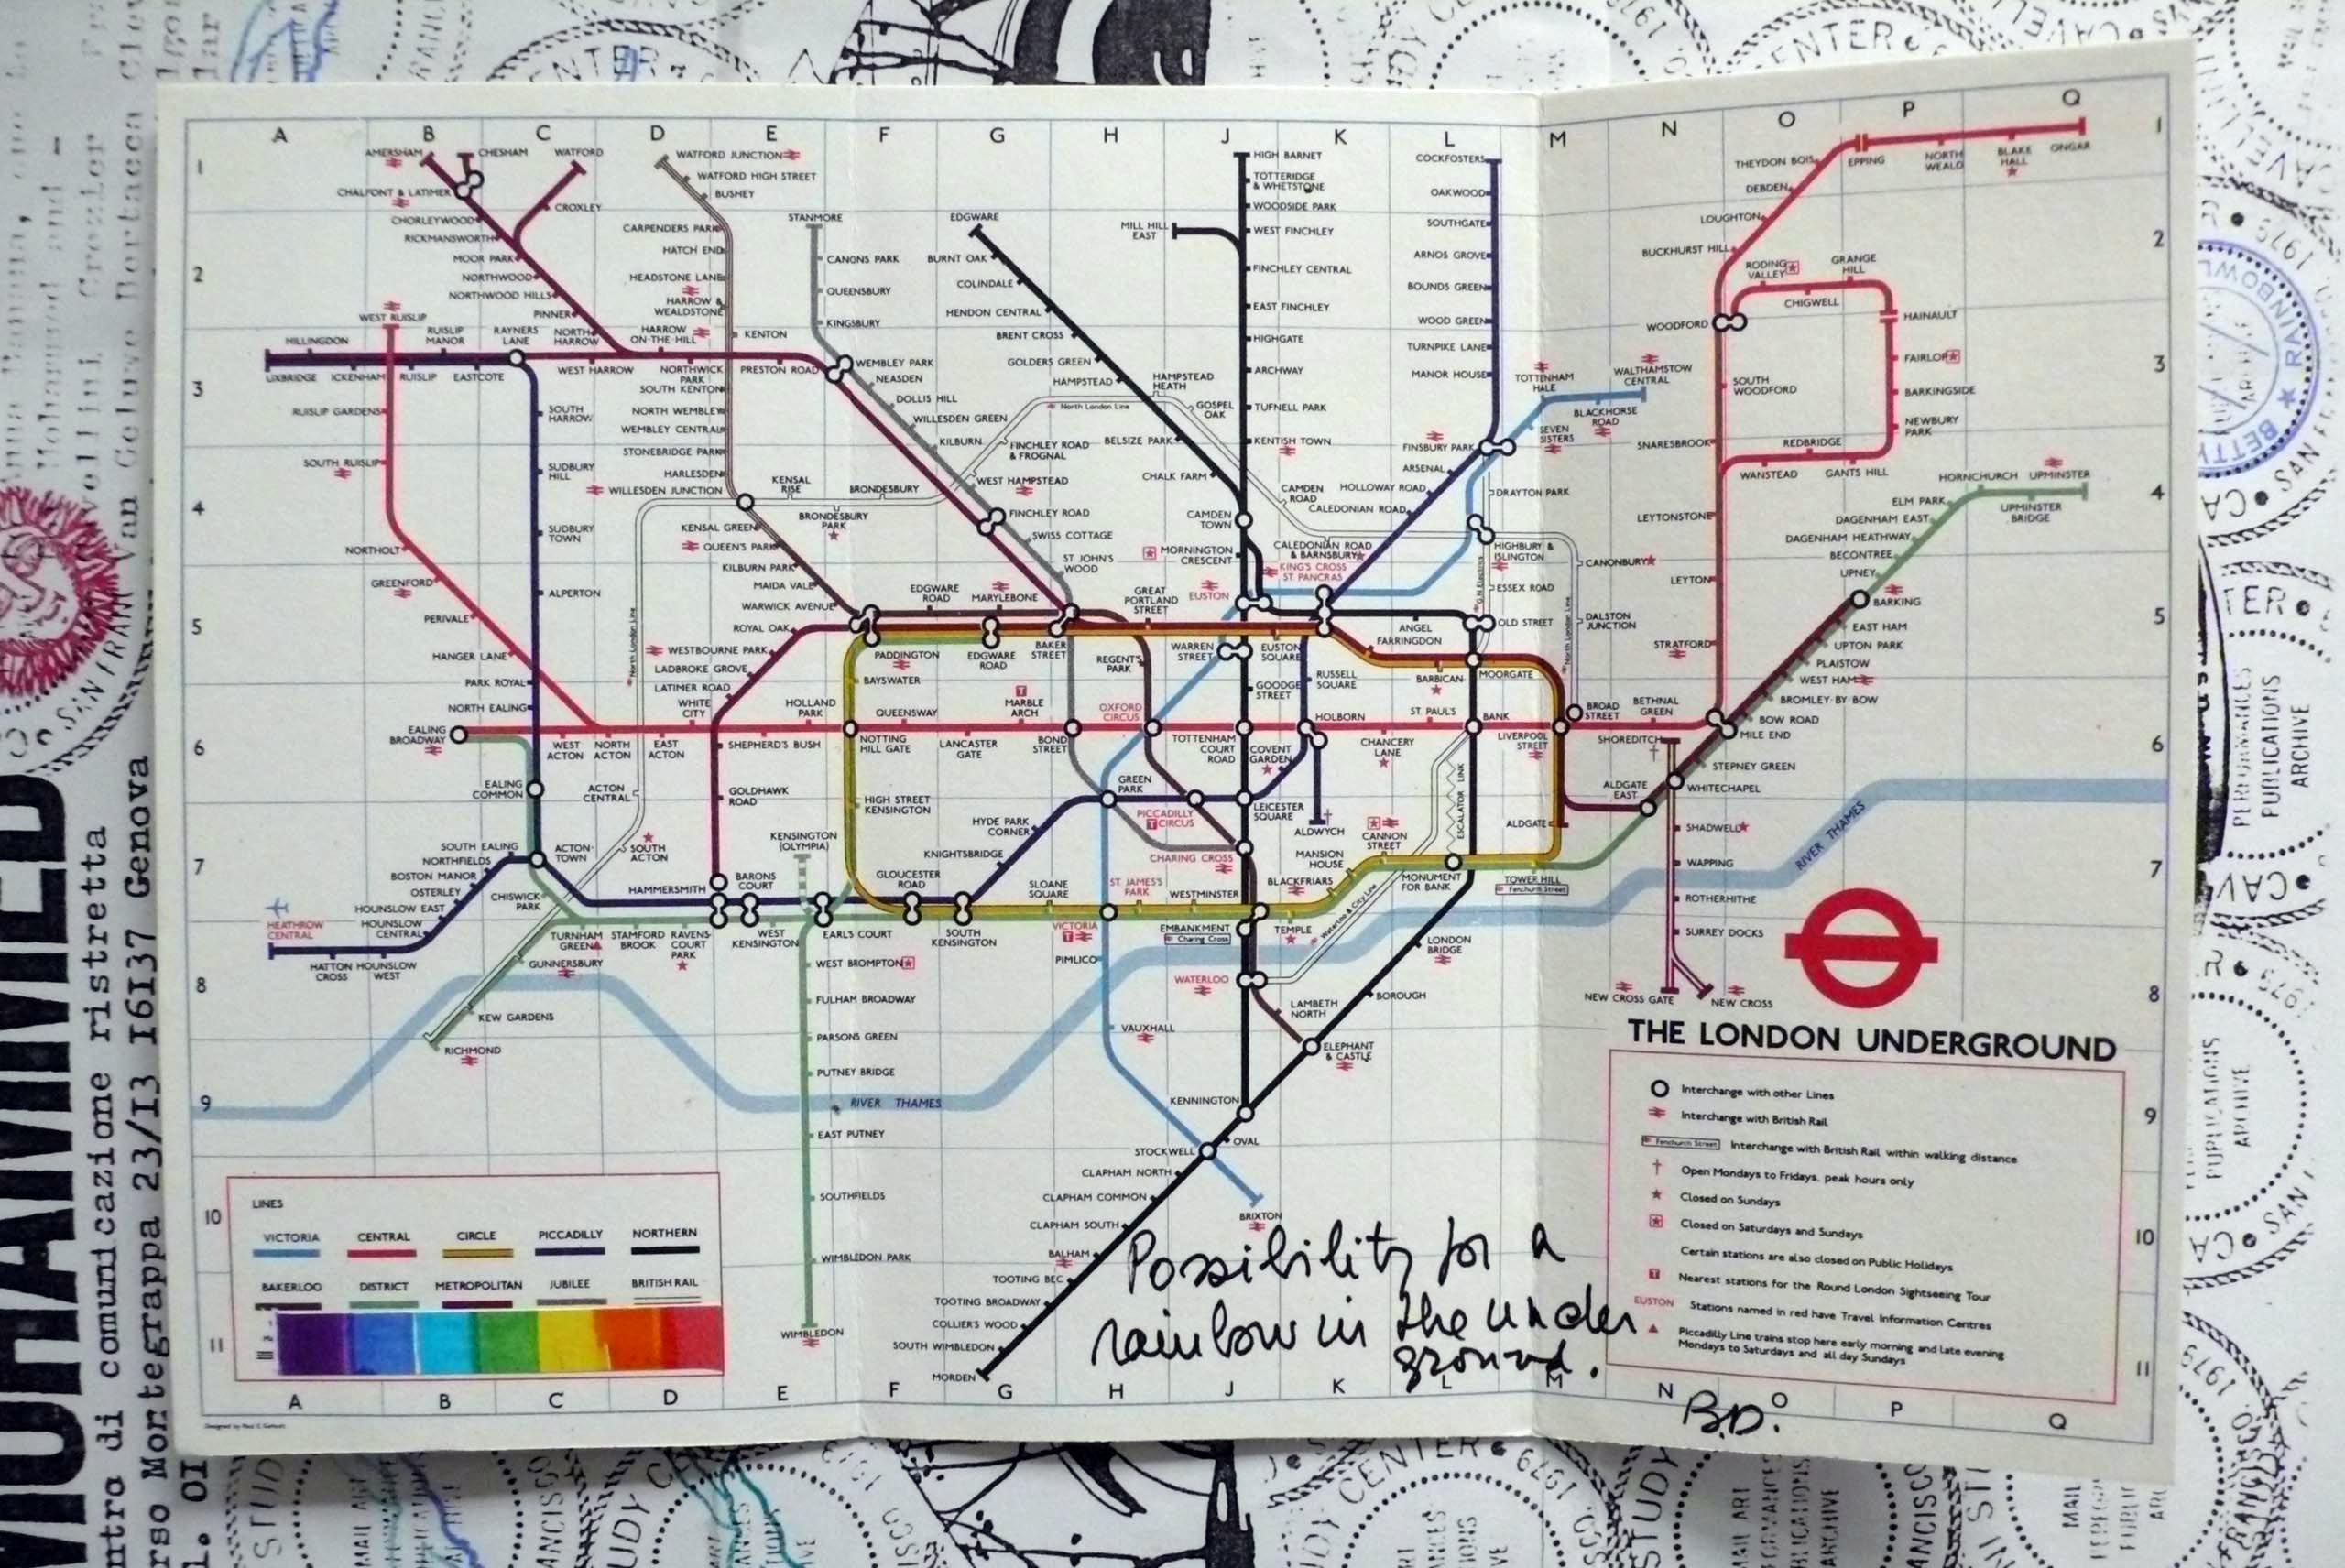 A B C D E F G H J K L M N O P Q
1 2 3 4 5 6 7 8 9 10 11
AMERSHAM
CHESHAM
WATFORD
CHALFONT & LATIMER
CHORLEYWOOD
CROXLEY
RICKMANSWORTH
MOOR PARK
NORTHWOOD
NORTHWOOD HILLS
PINNER
NORTH
HARROW
HARROW
ON·THE·HILL
WEST RUISLIP
HILLINGDON
RUISLIP
MANOR
RAYNERS
LANE
UXBRIDGE
ICKENHAM
RUISLIP
EASTCOTE
WEST HARROW
NORTHWICK
PARK
PRESTON ROAD
WATFORD JUNCTION
WATFORD HIGH STREET
BUSHEY
CARPENDERS PARK
HATCH END
HEADSTONE LANE
HARROW &
WEALDSTONE
KENTON
SOUTH KENTON
NORTH WEMBLEY
WEMBLEY CENTRAL
STONEBRIDGE PARK
HARLESDEN
WILLESDEN JUNCTION
KENSAL
RISE
BRONDESBURY
BRONDESBURY
PARK
KENSAL GREEN
QUEEN'S PARK
KILBURN PARK
MAIDA VALE
WARWICK AVENUE
ROYAL OAK
STANMORE
CANONS PARK
QUEENSBURY
KINGSBURY
WEMBLEY PARK
NEASDEN
DOLLIS HILL
WILLESDEN GREEN
KILBURN
FINCHLEY ROAD
& FROGNAL
WEST HAMPSTEAD
FINCHLEY ROAD
SWISS COTTAGE
ST JOHN'S
WOOD
EDGWARE
BURNT OAK
COLINDALE
HENDON CENTRAL
BRENT CROSS
GOLDERS GREEN
HAMPSTEAD
HAMPSTEAD
HEATH
North London Line
GOSPEL
OAK
BELSIZE PARK
CHALK FARM
CAMDEN
TOWN
MORNINGTON
CRESCENT
EUSTON
MILL HILL
EAST
HIGH BARNET
TOTTERIDGE
& WHETSTONE
WOODSIDE PARK
WEST FINCHLEY
FINCHLEY CENTRAL
EAST FINCHLEY
HIGHGATE
ARCHWAY
TUFNELL PARK
KENTISH TOWN
CAMDEN
ROAD
CALEDONIAN ROAD
& BARNSBURY
KING'S CROSS
ST PANCRAS
COCKFOSTERS
OAKWOOD
SOUTHGATE
ARNOS GROVE
BOUNDS GREEN
WOOD GREEN
TURNPIKE LANE
MANOR HOUSE
FINSBURY PARK
ARSENAL
HOLLOWAY ROAD
CALEDONIAN ROAD
TOTTENHAM
HALE
WALTHAMSTOW
CENTRAL
BLACKHORSE
ROAD
SEVEN
SISTERS
DRAYTON PARK
HIGHBURY &
ISLINGTON
CANONBURY
ESSEX ROAD
G.N.Electrics
OLD STREET
DALSTON
JUNCTION
North London Line
THEYDON BOIS
EPPING
NORTH
WEALD
BLAKE
HALL
ONGAR
DEBDEN
LOUGHTON
BUCKHURST HILL
RODING
VALLEY
GRANGE
HILL
CHIGWELL
WOODFORD
HAINAULT
FAIRLOP
BARKINGSIDE
NEWBURY
PARK
SOUTH
WOODFORD
SNARESBROOK
REDBRIDGE
WANSTEAD
GANTS HILL
LEYTONSTONE
LEYTON
STRATFORD
HORNCHURCH
UPMINSTER
UPMINSTER
BRIDGE
ELM PARK
DAGENHAM EAST
DAGENHAM HEATHWAY
BECONTREE
UPNEY
BARKING
EAST HAM
UPTON PARK
PLAISTOW
WEST HAM
BROMLEY·BY·BOW
BOW ROAD
MILE END
STEPNEY GREEN
WHITECHAPEL
RUISLIP GARDENS
SOUTH RUISLIP
NORTHOLT
GREENFORD
PERIVALE
HANGER LANE
SOUTH
HARROW
SUDBURY
HILL
SUDBURY
TOWN
ALPERTON
PARK ROYAL
NORTH EALING
EALING
BROADWAY
WEST
ACTON
NORTH
ACTON
EAST
ACTON
WHITE
CITY
North London Line
WESTBOURNE PARK
LADBROKE GROVE
LATIMER ROAD
EDGWARE
ROAD
MARYLEBONE
GREAT
PORTLAND
STREET
PADDINGTON
EDGWARE
ROAD
BAKER
STREET
REGENT'S
PARK
WARREN
STREET
EUSTON
SQUARE
ANGEL
FARRINGDON
BARBICAN
MOORGATE
BAYSWATER
HOLLAND
PARK
QUEENSWAY
MARBLE
ARCH
OXFORD
CIRCUS
GOODGE
STREET
RUSSELL
SQUARE
HOLBORN
ST. PAUL'S
BANK
BROAD
STREET
BETHNAL
GREEN
SHEPHERD'S BUSH
NOTTING
HILL GATE
LANCASTER
GATE
BOND
STREET
TOTTENHAM
COURT
ROAD
COVENT
GARDEN
CHANCERY
LANE
LIVERPOOL
STREET
SHOREDITCH
EALING
COMMON
ACTON
CENTRAL
GOLDHAWK
ROAD
HIGH STREET
KENSINGTON
HYDE PARK
CORNER
GREEN
PARK
PICCADILLY
CIRCUS
LEICESTER
SQUARE
ALDWYCH
CANNON
STREET
ESCALATOR LINK
ALDGATE
ALDGATE
EAST
SHADWELL
WAPPING
ROTHERHITHE
SURREY DOCKS
NEW CROSS GATE
NEW CROSS
RIVER THAMES
SOUTH EALING
NORTHFIELDS
BOSTON MANOR
OSTERLEY
HOUNSLOW EAST
HOUNSLOW
CENTRAL
HEATHROW
CENTRAL
HATTON
CROSS
HOUNSLOW
WEST
ACTON·
TOWN
SOUTH
ACTON
CHISWICK
PARK
TURNHAM
GREEN
STAMFORD
BROOK
RAVENS
COURT
PARK
GUNNERSBURY
KEW GARDENS
RICHMOND
HAMMERSMITH
BARONS
COURT
KENSINGTON
(OLYMPIA)
WEST
KENSINGTON
EARL'S COURT
GLOUCESTER
ROAD
KNIGHTSBRIDGE
SOUTH
KENSINGTON
SLOANE
SQUARE
VICTORIA
ST JAMES'S
PARK
WESTMINSTER
CHARING CROSS
EMBANKMENT
Charing Cross
MANSION
HOUSE
BLACKFRIARS
TEMPLE
Waterloo & City Line
MONUMENT
FOR BANK
TOWER HILL
Fenchurch Street
WEST BROMPTON
FULHAM BROADWAY
PARSONS GREEN
PUTNEY BRIDGE
RIVER THAMES
EAST PUTNEY
SOUTHFIELDS
WIMBLEDON PARK
WIMBLEDON
PIMLICO
VAUXHALL
WATERLOO
LAMBETH
NORTH
ELEPHANT
& CASTLE
LONDON
BRIDGE
BOROUGH
KENNINGTON
OVAL
STOCKWELL
BRIXTON
CLAPHAM NORTH
CLAPHAM COMMON
CLAPHAM SOUTH
BALHAM
TOOTING BEC
TOOTING BROADWAY
COLLIER'S WOOD
SOUTH WIMBLEDON
MORDEN
THE LONDON UNDERGROUND
Interchange with other Lines
Interchange with British Rail
Fenchurch Street Interchange with British Rail within walking distance
† Open Mondays to Fridays, peak hours only
★ Closed on Sundays
Closed on Saturdays and Sundays
Certain stations are also closed on Public Holidays
T Nearest stations for the Round London Sightseeing Tour
EUSTON Stations named in red have Travel Information Centres
▲ Piccadilly Line trains stop here early morning and late evening
Mondays to Saturdays and all day Sundays
LINES
VICTORIA CENTRAL CIRCLE PICCADILLY NORTHERN
BAKERLOO DISTRICT METROPOLITAN JUBILEE BRITISH RAIL
Possibility for a
rainbow in the under
ground.
B.D.
A B C D E F G H J K L M N O P Q
ntro di comunicazione ristretta
rso Montegrappa 23/I3 I6I37 Genova
PERFORMANCES
PUBLICATIONS
ARCHIVE